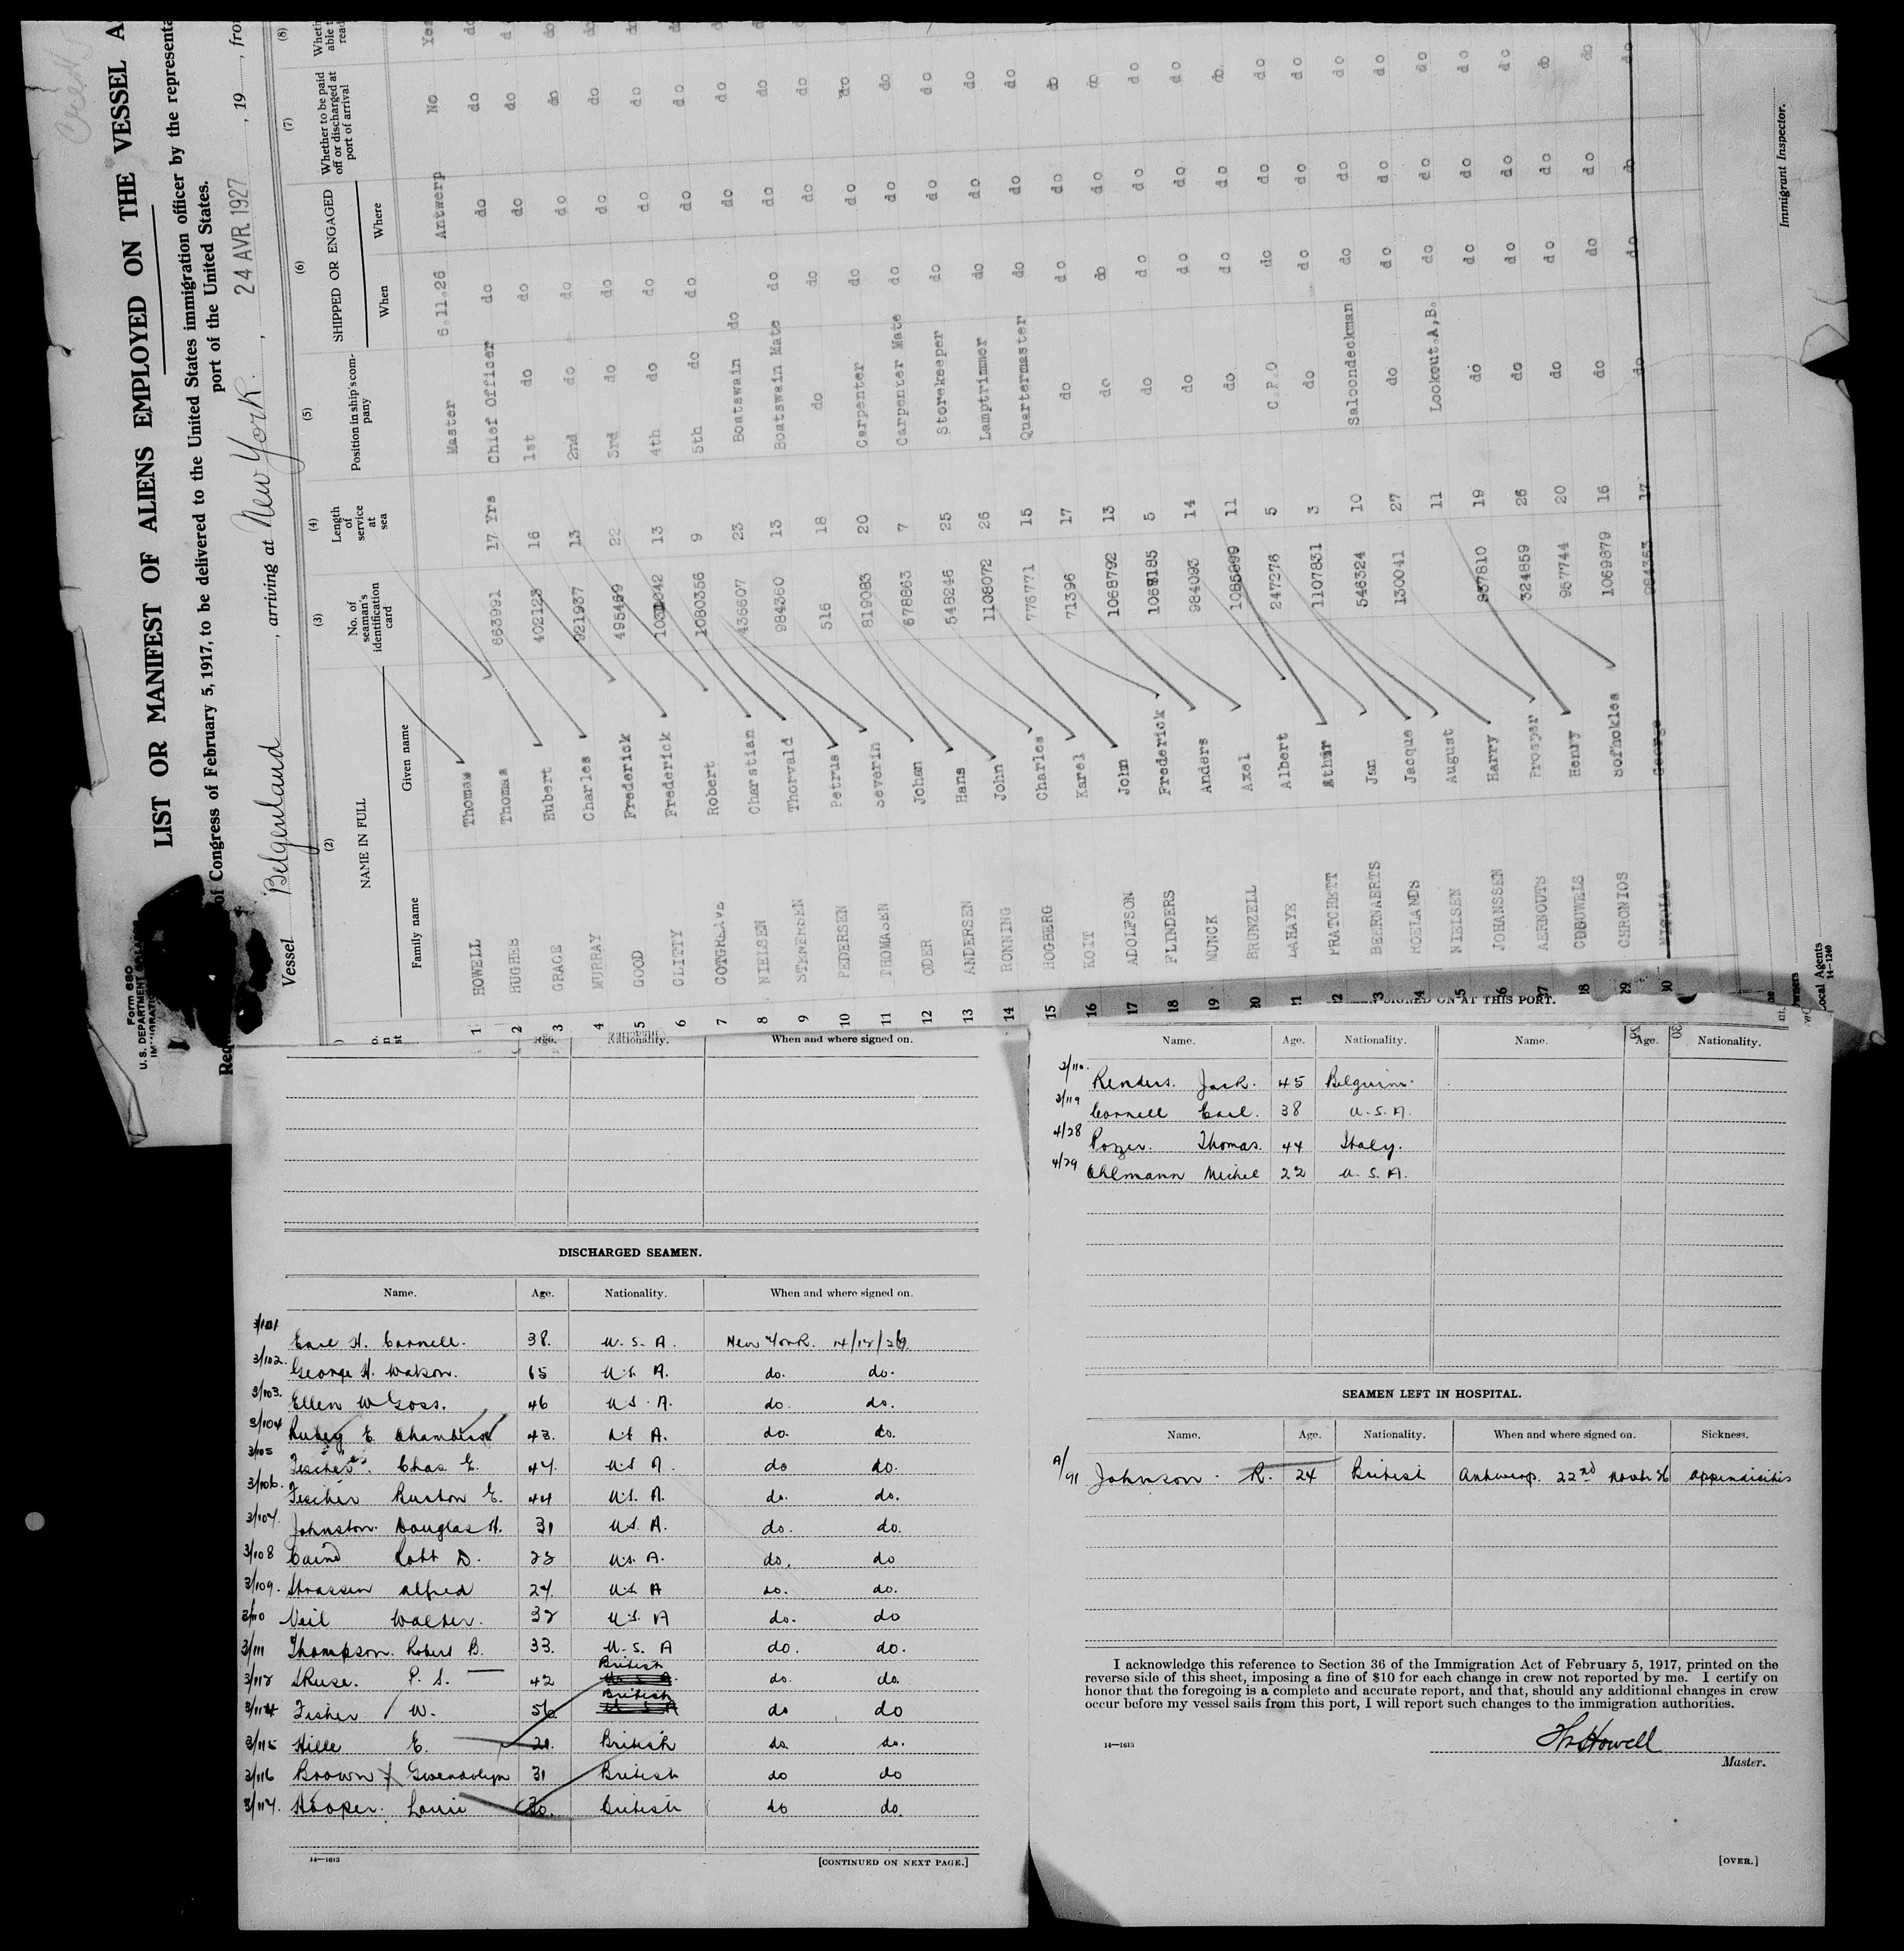 LIST OR MANIFEST OF ALIENS EMPLOYED ON THE VESSEL A
of Congress of February 5, 1917, to be delivered to the United States immigration officer by the representa
port of the United States.
Form 680
U. S. DEPARTMENT
Vessel Belgenland, arriving at New York, 24 AVR. 1927, 19 , fro
(2) (3) (4) (5) (6) (7) (8)
NAME IN FULL
Family name Given name
No. of seaman's identification card
Length of service at sea
Position in ship's company
SHIPPED OR ENGAGED
When Where
Whether to be paid off or discharged at port of arrival
1 HOWELL Thomas 17 Yrs Master 6.11.26 Antwerp No Yes
2 HUGHES Thomas 663991 16 Chief Officer do do do do
3 GRACE Hubert 402123 13 1st do do do do
4 MURRAY Charles 921937 22 2nd do do do do
5 GOOD Frederick 495469 13 3rd do do do do
6 CLITTY Frederick 9 4th do do do do
7 COTGREAVE Robert 1080356 23 5th do do do do
8 NIELSEN Charstian 436607 13 Boatswain do do do
9 Thorvald 984360 18 Boatswain Mate do do do
10 PEDERSEN Petrus 516 20 do do do do
11 THOMASEN Severin 819083 7 Carpenter do do do
12 ODER Johan 678863 25 Carpenter Mate do do do
13 ANDERSEN Hans 548246 26 Storekeeper do do do
14 RONNING John 1108072 15 Lamptrimmer do do do
15 HOGBERG Charles 776771 17 Quartermaster do do do
16 KOIT Karel 71396 13 do do do do
17 ADOLFSON John 1068792 5 do do do do
18 FLINDERS Frederick 14 do do do do
19 MUNCK Anders 984093 11 do do do do
20 BRUNZELL Axel 5 do do do do
21 LAHAYE Albert 247276 3 C.P.O do do do
22 PRATCHETT 1107831 10 do do do do
23 BEERNAERTS Jan 546324 27 Saloondeckman do do do
24 ROELANDS Jacque 130041 11 do do do do
25 NIELSEN August 19 Lookout.A,B. do do do
26 JOHANSEN Harry 937810 26 do do do do
27 AERNOUTS Prosper 324859 20 do do do do
28 Henry 957744 16 do do do do
29 CHRONIOS Sofhokles 1069879 17 do do do do
30 NICOLAS George 984363 do do do
Immigrant Inspector.
Local Agents
14—1240
Age. Nationality. When and where signed on.
DISCHARGED SEAMEN.
Name. Age. Nationality. When and where signed on.
3/101 Earl H. Cornell. 38. U. S. A. New York.
3/102. George H. Watson. 65 U.S. A. do. do.
3/103. Ellen W Goss. 46 U.S. A. do. do.
3/104 Rubey E. Chambers 43. U.S. A. do. do.
3/105 Fischer. Chas E. 47. U.S A. do do.
3/106. Fischer Ruston E. 44 U.S. A. do. do.
3/107. Johnston. Douglas H. 31 U.S. A. do. do.
3/108 Robt D. U.S. A. do. do
3/109. Strassen Alfred 27. U.S. A do. do.
3/110 Neil Walter. 32 U.S. A do. do
3/111 Thompson. Robert B. 33. U. S. A do. do.
3/112 Skuse. P. S. 42 British do. do.
3/114 Fisher W. 56 British do do
3/115 Hille E. 21. British do. do.
3/116 Brown Gwendolyn 31 British do do
3/117. Hooper. Louie 30. British do do.
14—1613
[CONTINUED ON NEXT PAGE.]
SIGNED ON AT THIS PORT.
Name. Age. Nationality. Name. Age. Nationality.
3/118. Renders. Jack. 45 Belguim.
3/119 Cornell Earl. 38 U. S. A.
4/28 Pozer. Thomas. 44 Italy.
4/29 Ohlmann Michel 22 U. S. A.
SEAMEN LEFT IN HOSPITAL.
Name. Age. Nationality. When and where signed on. Sickness.
A/91 Johnson. R. 24 British Antwerp. 22nd Novbr 26 appendicitis
I acknowledge this reference to Section 36 of the Immigration Act of February 5, 1917, printed on the
reverse side of this sheet, imposing a fine of $10 for each change in crew not reported by me. I certify on
honor that the foregoing is a complete and accurate report, and that, should any additional changes in crew
occur before my vessel sails from this port, I will report such changes to the immigration authorities.
Howell
14—1613
Master.
[OVER.]